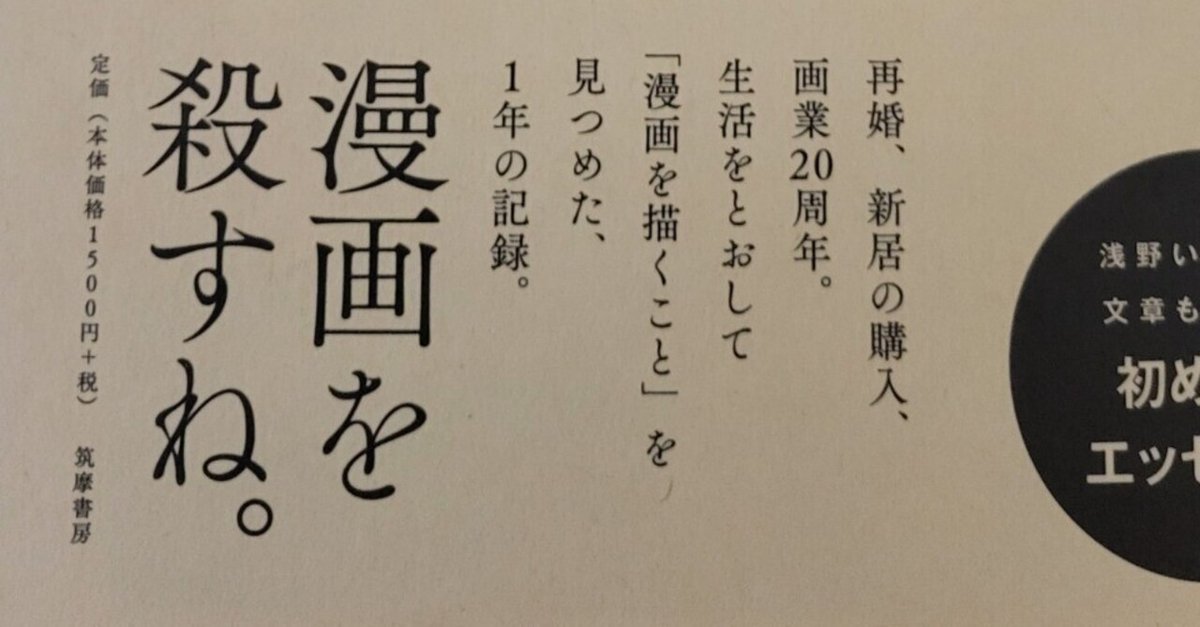 浅野い
文章も
初め
エッセ
再婚、新居の購入、
画業20周年。
生活をとおして
「漫画を描くこと」を
見つめた、
1年の記録。
漫画を
殺すね。
定価（本体価格1500円＋税） 筑摩書房